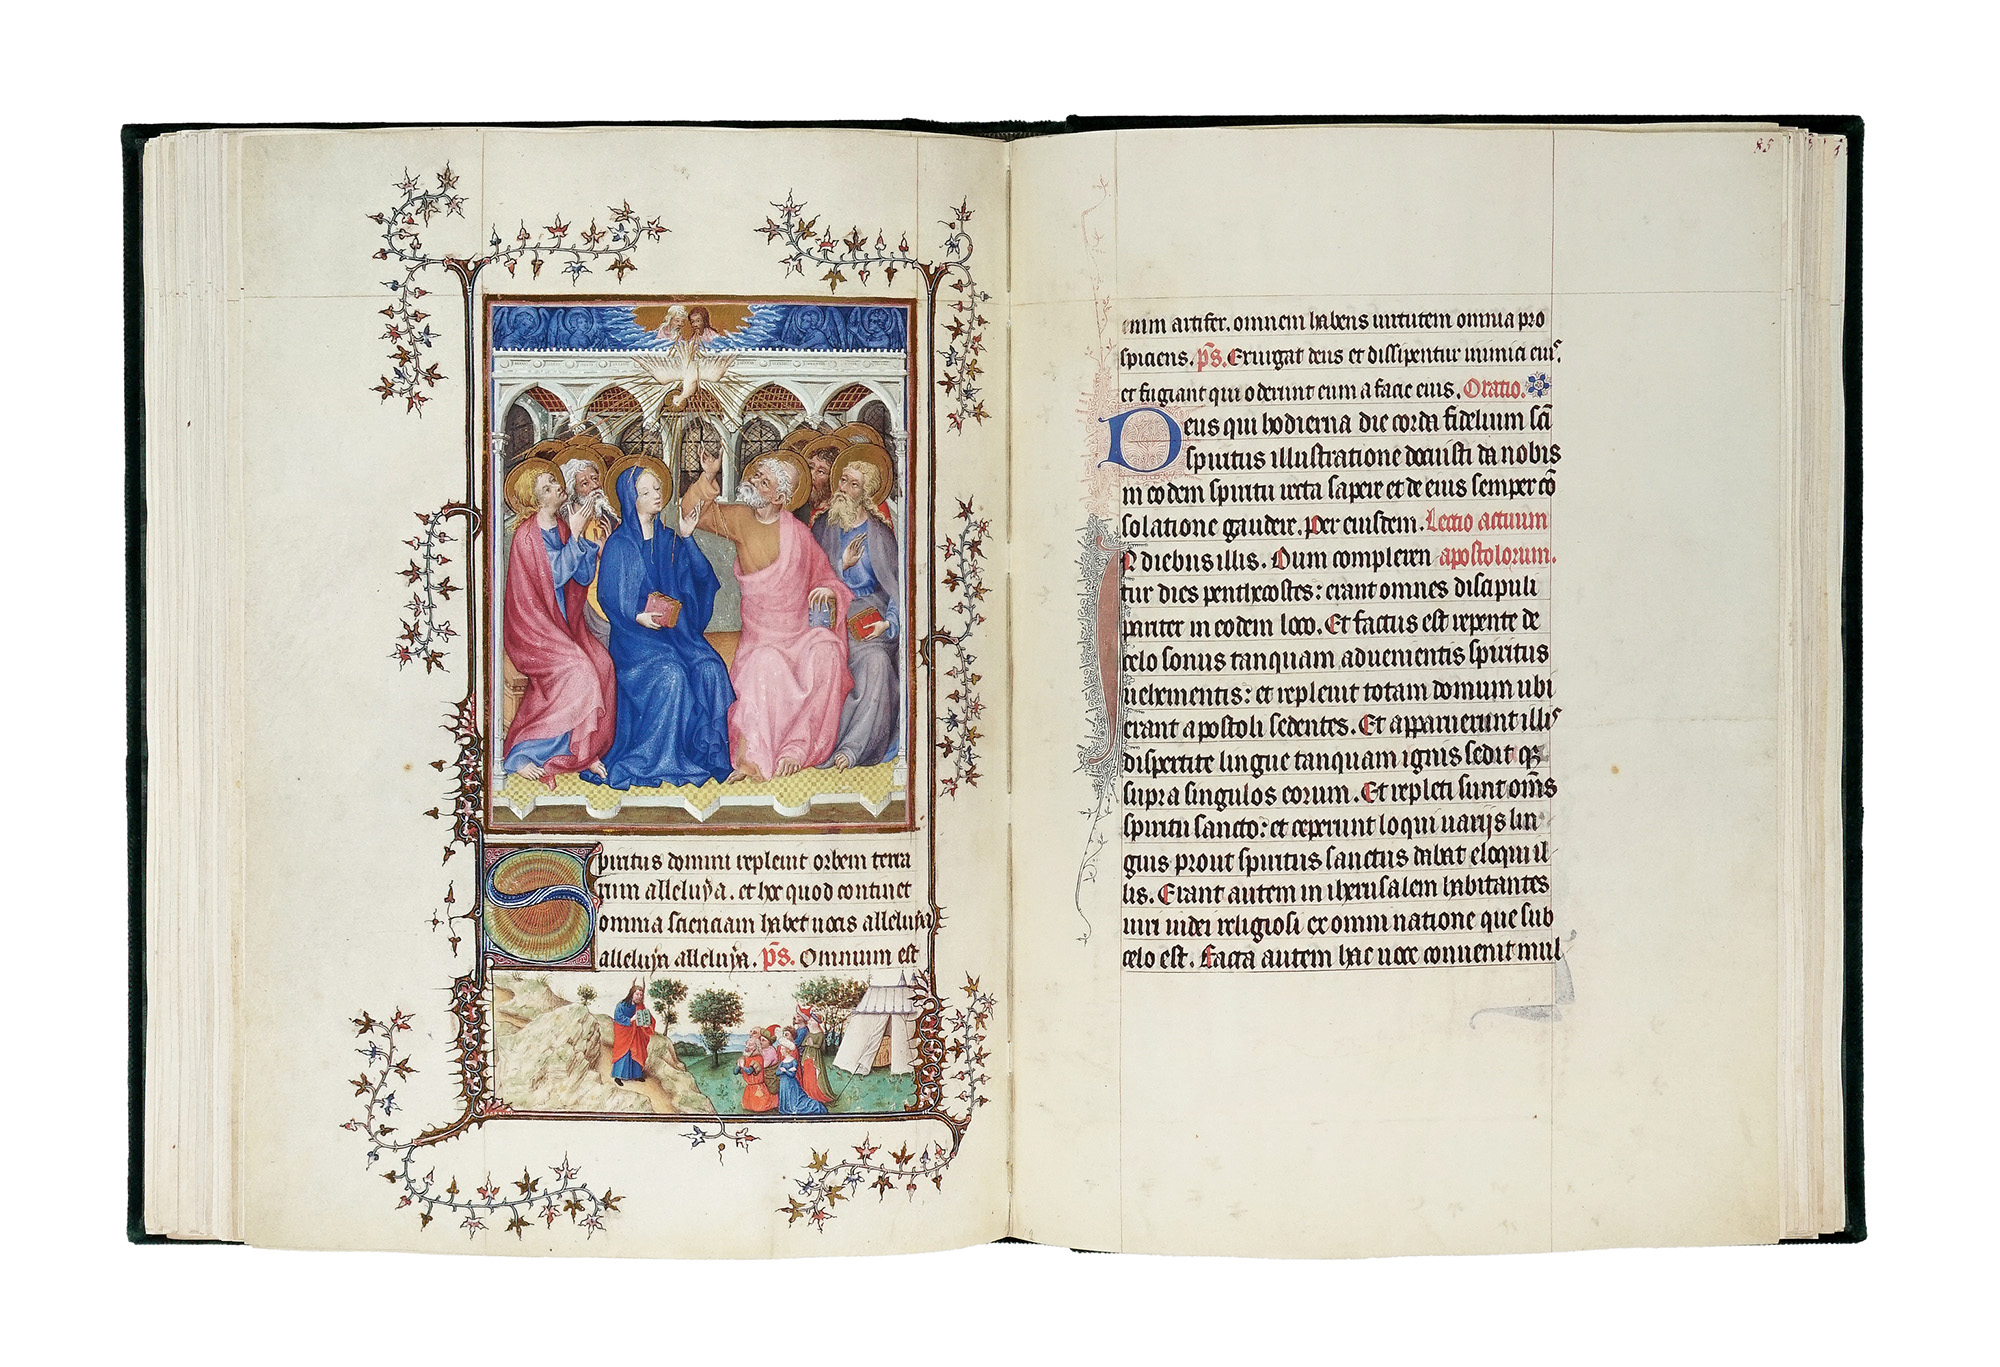 Spiritus domini repleuit orbem terra
rum alleluya. et hoc quod continet
omnia scienciam habet uocis alleluya
alleluya alleluya. p̄s. Omnium est
85
enim artifex. omnem habens uirtutem omnia pro
spiciens. p̄s. Exurgat deus et dissipentur inimici eiuˢ.
et fugiant qui oderunt eum a facie eius. Oratio.
Deus qui hodierna die corda fidelium sc̄i
spiritus illustratione docuisti da nobis
in eodem spiritu recta sapere et de eius semper cō
solatione gaudere. Per eiusdem. Lectio actuum
In diebus illis. Dum compleren apostolorum.
tur dies penthecostes: erant omnes discipuli
pariter in eodem loco. Et factus est repente de
celo sonus tanquam aduenientis spiritus
uehementis: et repleuit totam domum ubi
erant apostoli sedentes. Et apparuerunt illiˢ
dispertite lingue tanquam ignis sedit qꝫ
supra singulos eorum. Et repleti sunt om̄s
spiritu sancto: et ceperunt loqui uarijs lin
guis prout spiritus sanctus dabat eloqui il
lis. Erant autem in iherusalem habitantes
uiri iudei religiosi ex omni natione que sub
celo est. Facta autem hac uoce conuenit mul